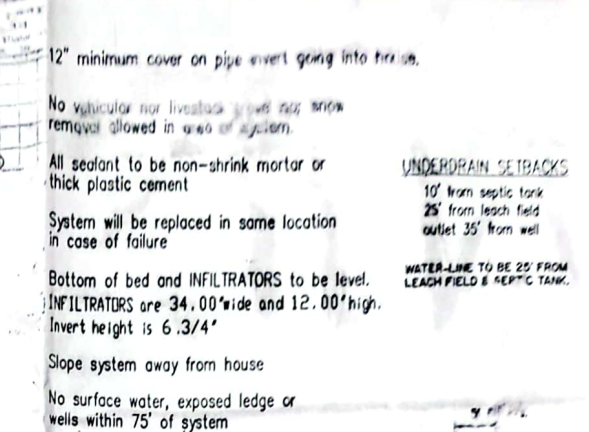 12" minimum cover on pipe invert going into house.
No vehicular nor livestock nor snow
removal allowed in area of system.
All sealant to be non-shrink mortar or
thick plastic cement
System will be replaced in same location
in case of failure
Bottom of bed and INFILTRATORS to be level.
INFILTRATORS are 34.00"wide and 12.00"high.
Invert height is 6.3/4"
Slope system away from house
No surface water, exposed ledge or
wells within 75' of system
UNDERDRAIN SETBACKS
10' from septic tank
25' from leach field
outlet 35' from well
WATER-LINE TO BE 25' FROM
LEACH FIELD & SEPTIC TANK.